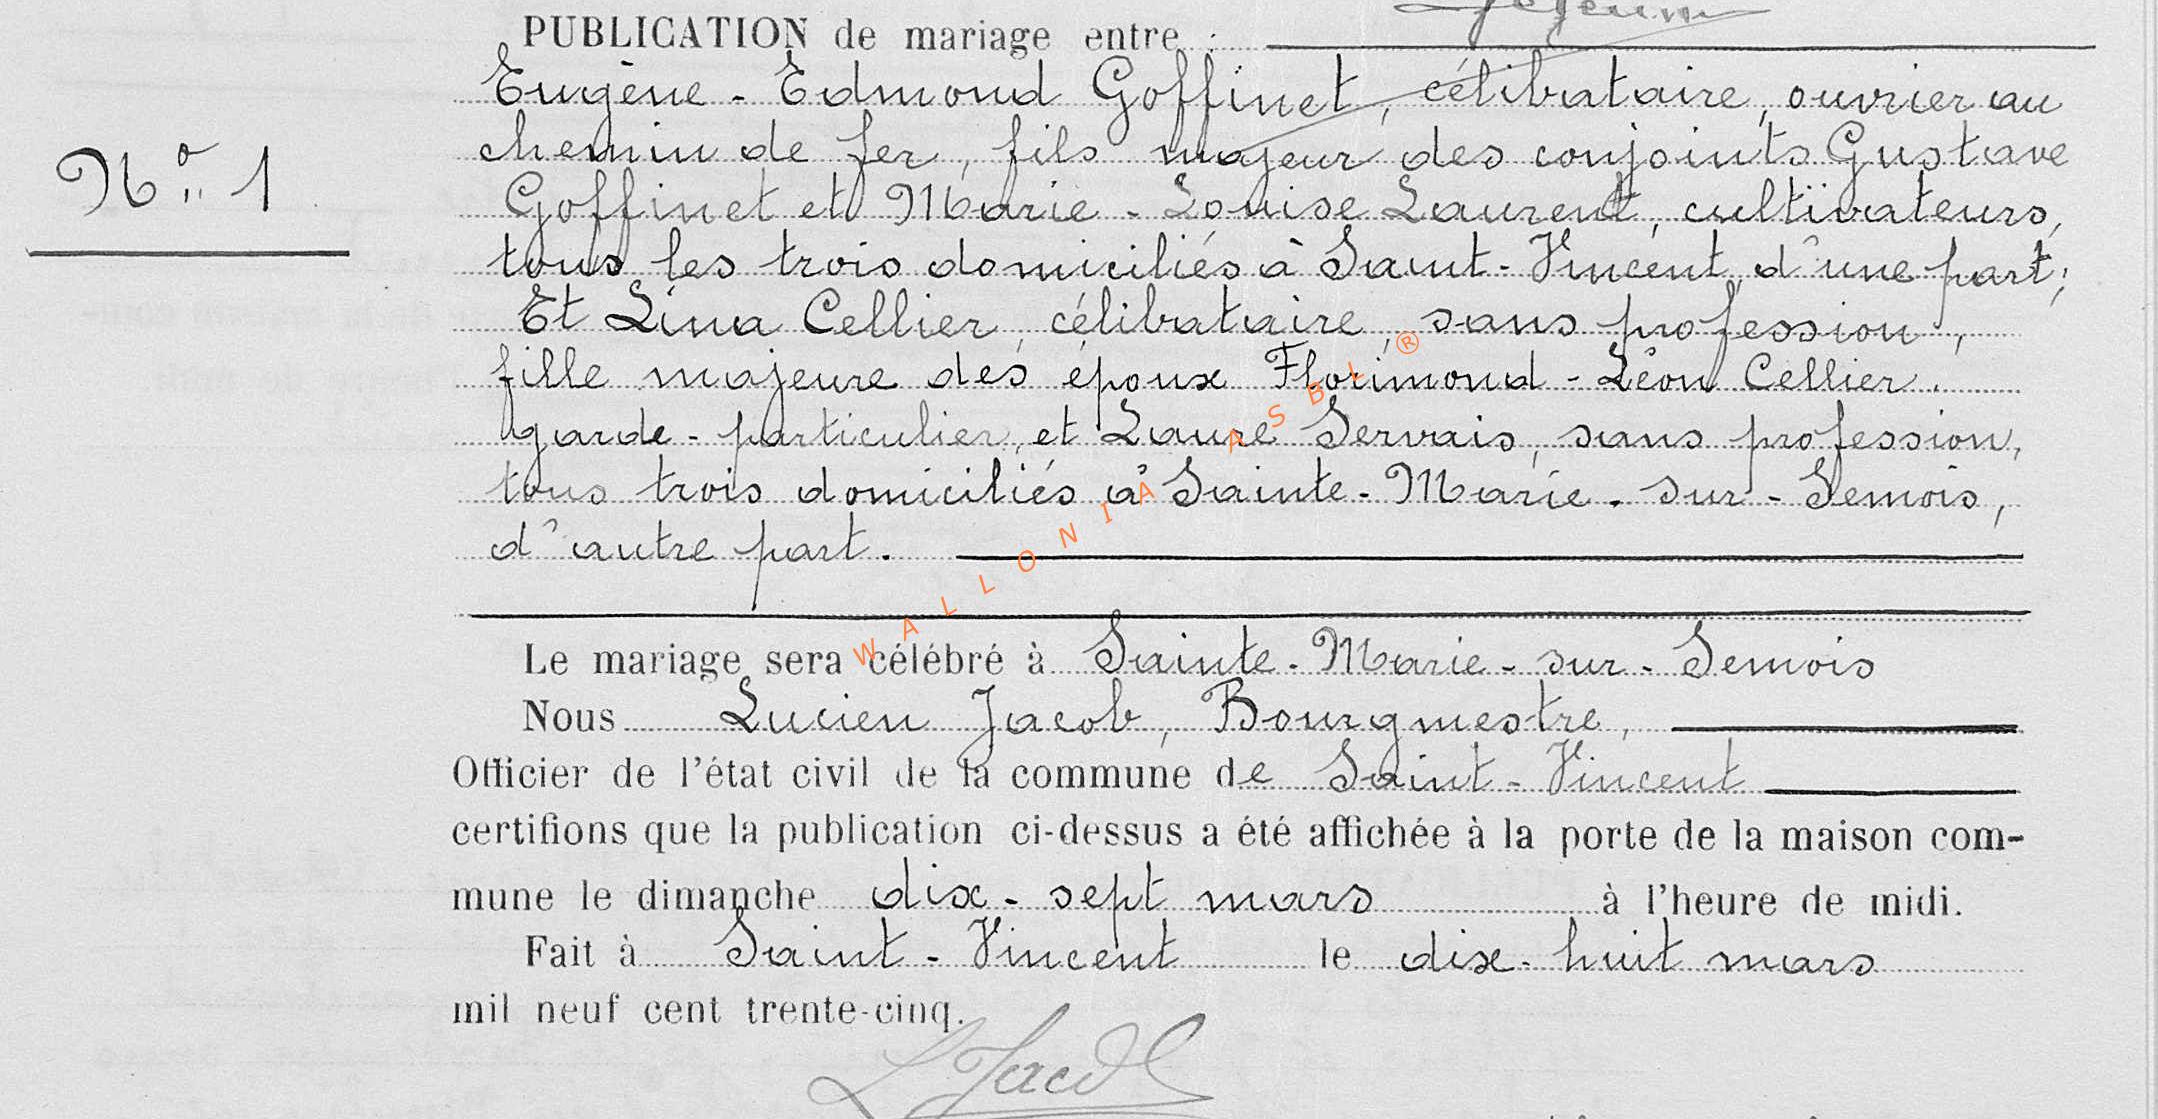 PUBLICATION de mariage entre :
Eugène - Edmond Goffinet, célibataire, ouvrier au
N° 1
chemin de fer, fils majeur des conjoints Gustave
Goffinet et Marie - Louise Laurent, cultivateurs,
tous les trois domiciliés à Saint - Vincent, d'une part;
Et Lina Cellier, célibataire, sans profession,
fille majeure des époux Florimond - Léon Cellier,
garde - particulier, et Laure Servais, sans profession,
tous trois domiciliés à Sainte - Marie - sur - Semois,
d'autre part.
WALLONIA ASBL ®
Le mariage sera célébré à Sainte - Marie - sur - Semois
Nous Lucien Jacob, Bourgmestre,
Officier de l'état civil de la commune de Saint - Vincent
certifions que la publication ci-dessus a été affichée à la porte de la maison com-
mune le dimanche dix - sept mars à l'heure de midi.
Fait à Saint - Vincent le dix - huit mars
mil neuf cent trente-cinq.
L Jacob